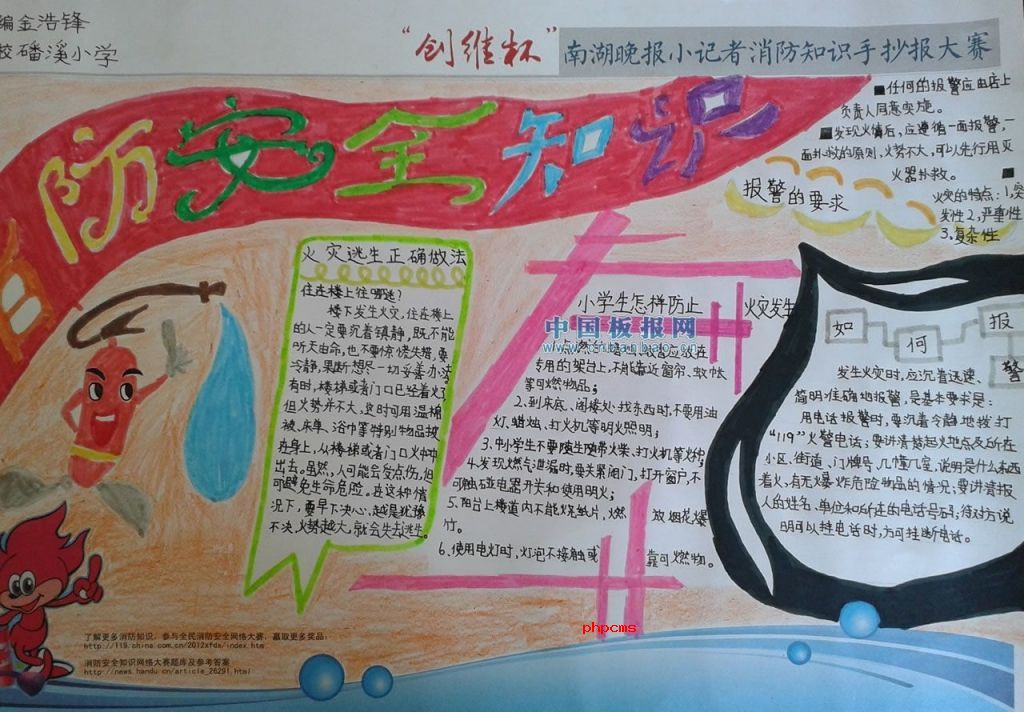 编金浩锋
校磻溪小学
“创维杯”南湖晚报小记者消防知识手抄报大赛
防安全知识
■任何的报警应由店上
负责人同意实施。
■发现火情后，应遵循一面报警，一
面扑救的原则，火势不大，可少人先行用灭
火器扑救。
■
火灾的特点：1，突
发性2，严重性
3，复杂性
报警的要求
火灾逃生正确做法
住在楼上往哪逃？
楼下发生火灾，住在楼上
的人一定要沉着镇静，既不能
听天由命，也不要惊慌失措，要
冷静，果断想尽一切妥善办法
有时，楼梯或者门口已经着火了
但火势并不大，这时可用湿棉
被、床单、浴巾等特别物品披
在身上，从楼梯或者门口火中冲
出去。虽然，人可能会受点伤，但
可避免生命危险。在这种情
况下，要早下决心，越是犹豫
不决，火势越大，就会失去逃生。
小学生怎样防止火灾发生
中国板报网
专用的架台上，不能靠近窗帘、蚊帐
等可燃物品；
2、到床底、阁楼处找东西时，不要用油
灯、蜡烛、打火机等明火照明；
3、中小学生不要随生随带火柴、打火机等火种；
4、发现燃气泄漏时，要关紧阀门，打开窗户，不
可触碰电器开关和使用明火；
5、阳台上楼道内不能烧纸片，燃放烟花爆
竹。
6、使用电灯时，灯泡不接触或靠可燃物。
如何报警
发生火灾时，应沉着迅速、
简明准确地报警，是基本要求是：
用电话报警时，要沉着冷静地拨打
“119”火警电话；要讲清楚起火地点及所在
小区、街道、门牌号、几幢几室，说明是什么东西
着火，有无爆炸危险物品的情况；要讲清报
人的姓名、单位和所在的电话号码，待对方说
明可以挂电话时，方可挂断电话。
phpcms
了解更多消防知识，参与全民消防安全网络大赛，赢取更多奖品：
http://119.china.com.cn/2012xfds/index.htm
消防安全知识网络大赛题库及参考答案
http://news.handu.cn/article_26291.html